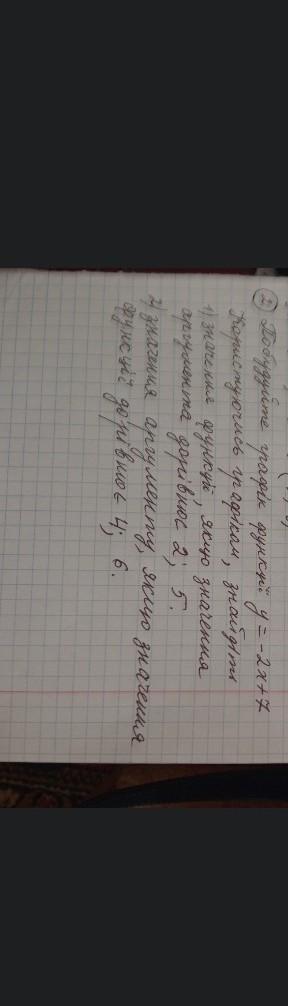 ② Побудуйте графік функції y = -2x+7
Користуючись графіком, знайдіть
1) значення функції, якщо значення
аргумента дорівнює 2; 5.
2) значення аргументу, якщо значення
функції дорівнює 4; 6.